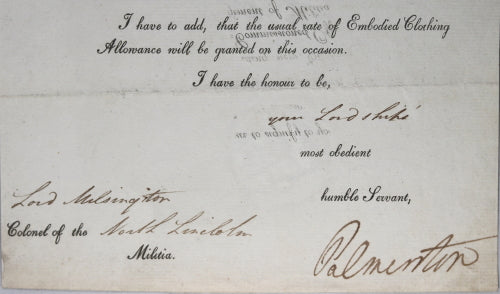 I have to add, that the usual rate of Embodied Clothing
Allowance will be granted on this occasion.
I have the honour to be,
your Lordships'
most obedient
humble Servant,
Lord Milsington
Colonel of the North Lincoln
Militia.
Palmerston